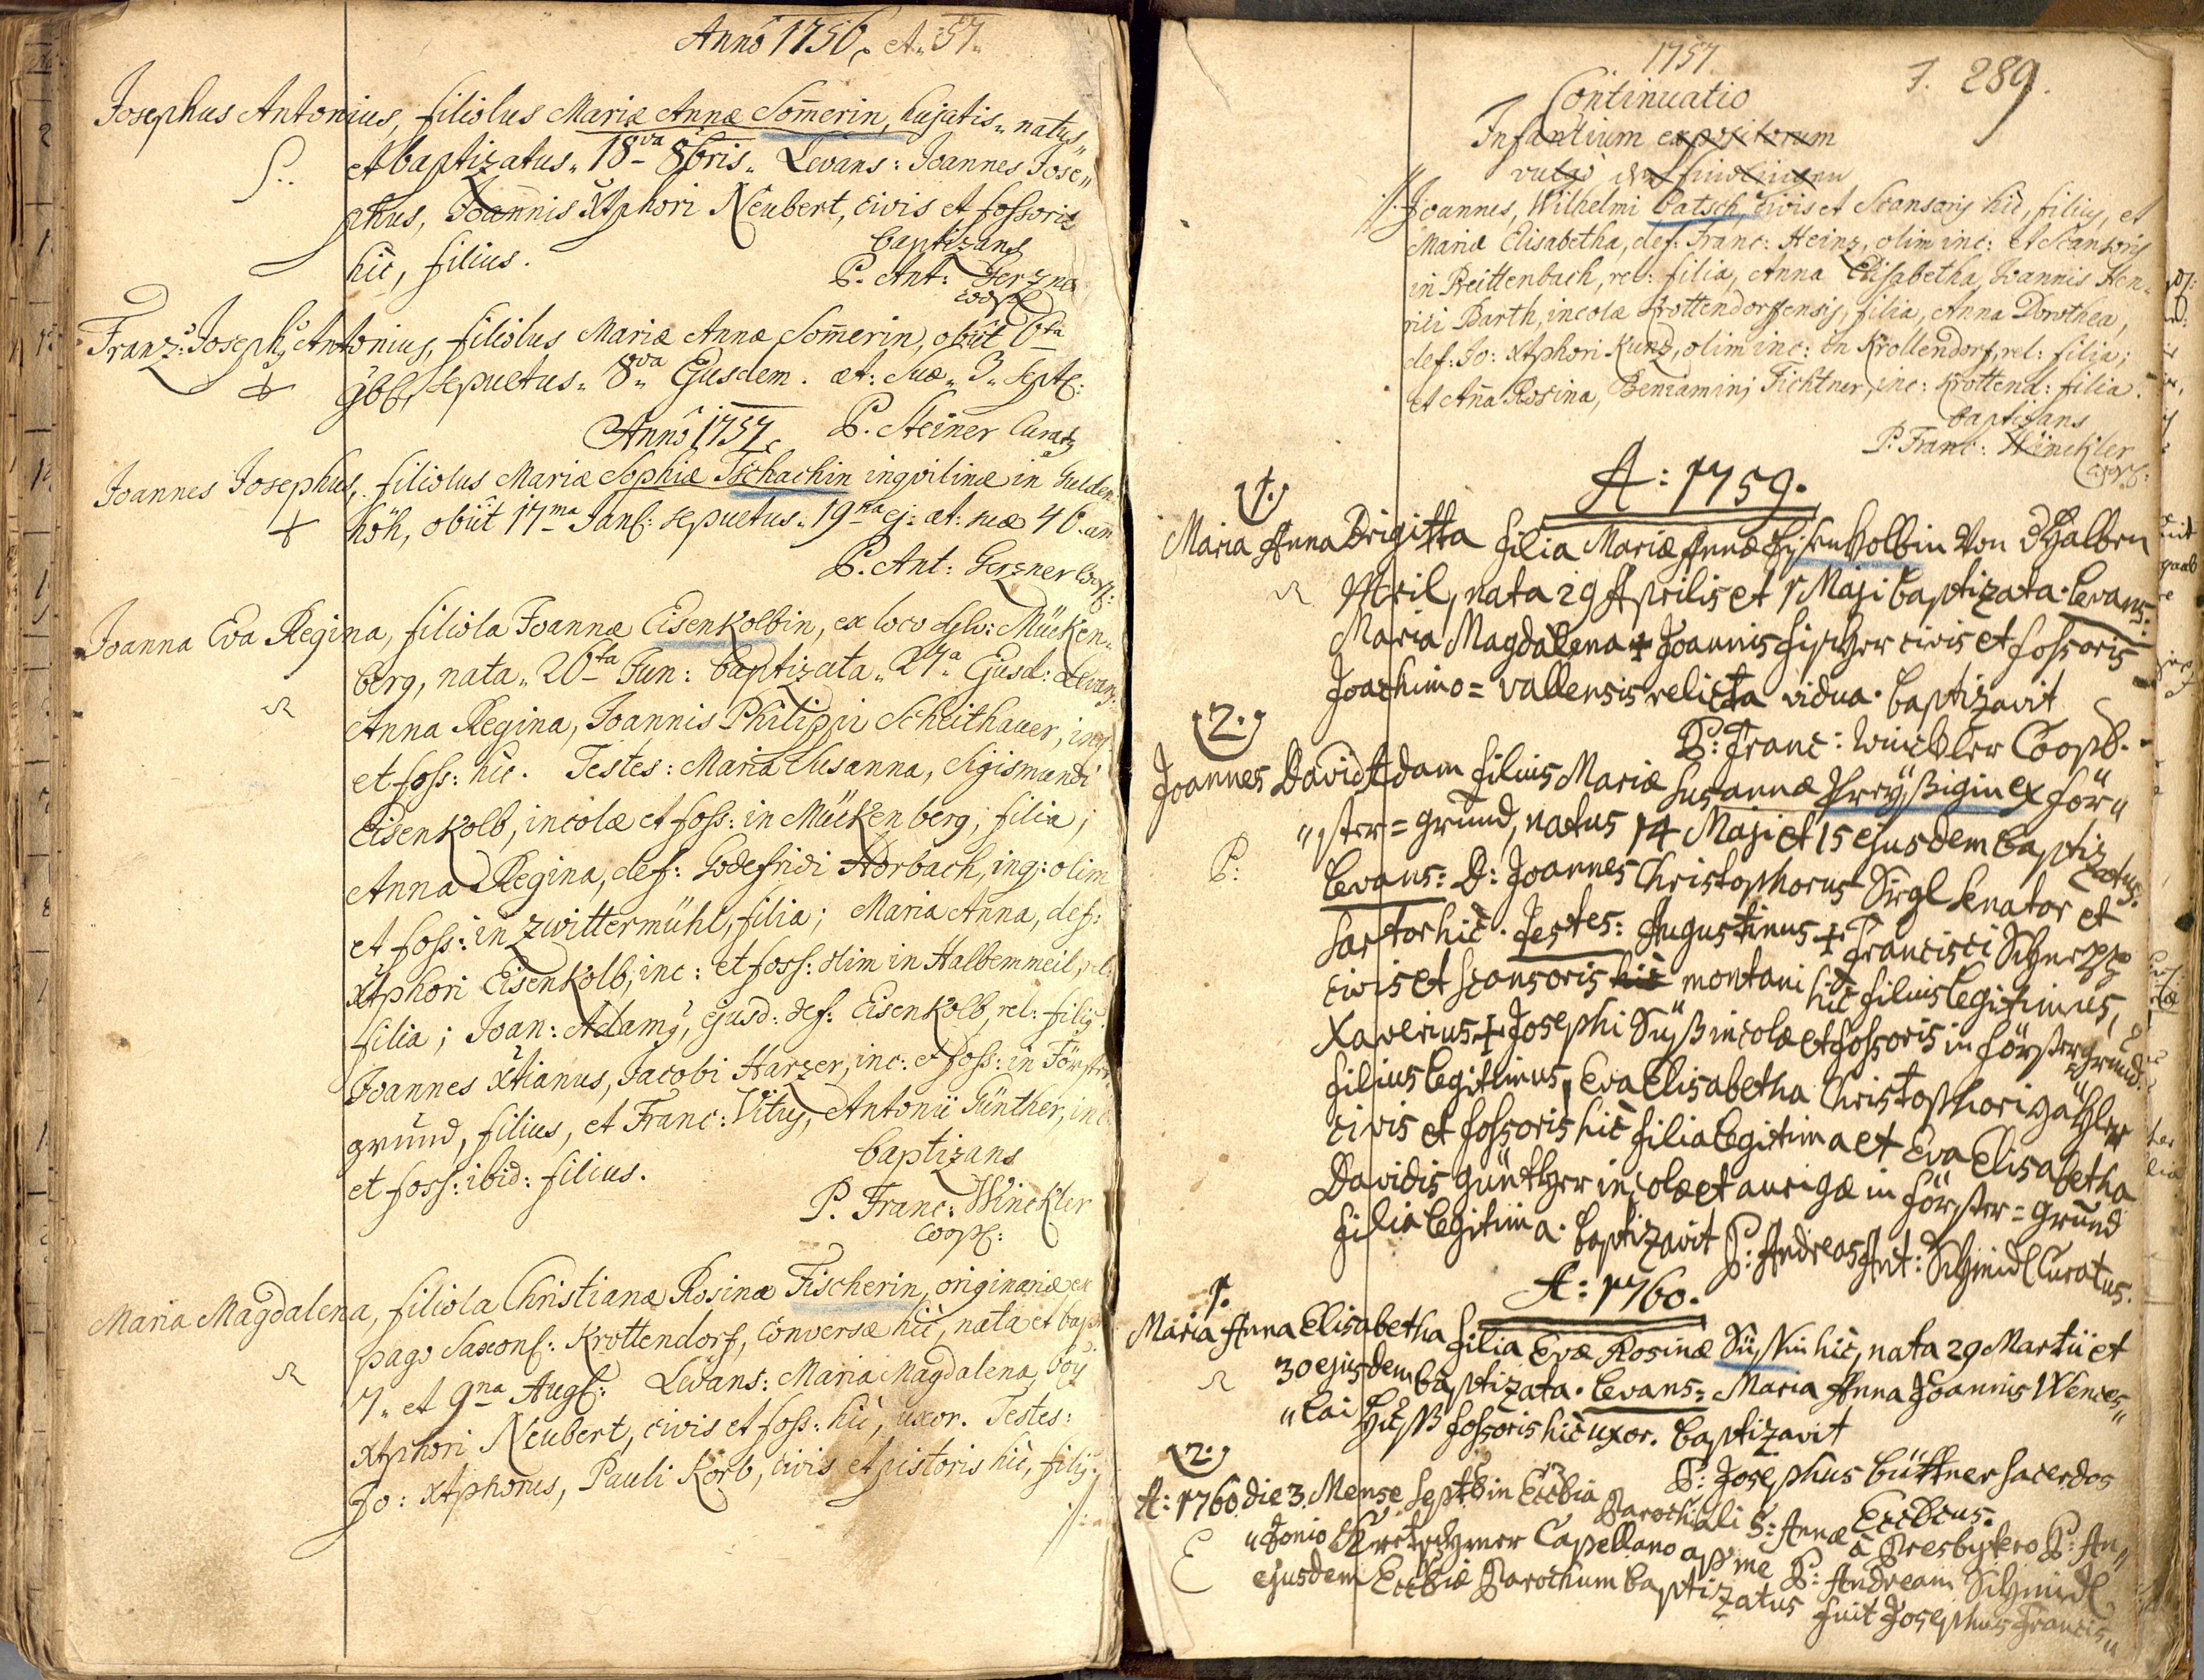 Anno 1756. et. 57.
Josephus Antonius, filiolus Mariæ Annæ Som̄erin, hujatis. natus,,
et baptizatus. 18va 8bris. Levans: Joannes Jose,,
phus, Joannis Xtphori Neubert, civis et fossoris
hic, filius.
baptizans
P. Ant: Gerzner
coop:
Franz: Joseph, Antonius, filiolus Mariæ Annæ Som̄erin, obiit 6ta
9bb, sepultus. 8va Ejusdem. æt: suæ. 3. Sept:
P. Steiner Curat9
Anno 1757.
Joannes Josephus, filiolus Mariæ Sophiæ Tschachin inqvilinæ in Gulden
höh, obiit 17ma Jan: sepultus. 19na ej: æt: suæ 46. an̄
P. Ant: Gerzner Coop:
Joanna Eva Regina, filiola Joannæ Eisenkolbin, ex loco Mücken-
berg, nata. 26ta Jun: baptizata. 27a Ejusd: Levans
Anna Regina, Joannis Philippi Scheithauer, inq:
et foss: hic. Testes: Maria Susanna, Sigismundi
Eisenkolb, incolæ et foss: in Mückenberg, filia;
Anna Regina, def: Godefridi Horbach, inq: olim
et foss: in Zwittermühl, filia; Maria Anna, def:
Xtphori Eisenkolb, inc: et foss: olim in Halbemmeil, rel:
filia; Joan: Adamg, ejusd: def: Eisenkolb, rel: filig
Joannes Xtianus, Jacobi Harzer, inc: et foss: in Förster
grund, filius, et Franc: Vitus, Antonii Günther, inc:
et foss: ibid: filius.
baptizans
P. Franc: Winckler
Coop:
Maria Magdalena, filiola Christianæ Rosinæ Fischerin, originariæ ex
pago Saxon: Krottendorf, conversæ hic, nata et bapt:
7. et 9na Aug: Levans: Maria Magdalena, Joy
Xtphori Neubert, civis et foss: hic, uxor. Testes:
Jo: Xtphorus, Pauli Korb, civis et pistoris hic, filig
·//·
1757
f. 289.
Continuatio
Infantium expositorum
vulgo den findlingen
·//· Joannes, Wilhelmi Patsch, civis et Scansoris hic, filiy, et
Maria Elisabetha, def: Franc: Heinz, olim inc: et Scansoris
in Breittenbach, rel: filia, Anna Elisabetha, Joannis Hen-
rici Barth, incolæ Krottendorffensis, filia, Anna Dorothea,
def: Jo: Xtphori Kunz, olim inc: in Krottendorf, rel: filia;
et An̄a Rosina, Beniamini Fichtner, inc: Krottend: filia.
baptizans
P. Franc: Winckler
Coop:
A: 1759.
1.
Maria Anna Brigitta filia Mariæ Annæ Eysenkolbin von Halben
Meil, nata 29 Aprilis et 1 Maji baptizata. Levans:
Maria Magdalena + Joannis Fischer civis et fossoris
Joachimo=vallensis relicta vidua. baptizavit
P: Franc: Winckler Coop.
2.
Joannes David Adam filius Mariæ Susannæ Preyßigin ex för,,
,,ster=grund, natus 14 Maji et 15 ejusdem baptizatus.
P:
Levans: D: Joannes Christophorus Sirgl Senator et
Sartor hic. Testes: Augustinus + Francisci
civis et scansoris hic montani hic filius legitimus,
Xaverius + Josephi Süß incolæ et fossoris in förstergrund
filius legitimus, Eva Elisabetha Christophori Zähler
civis et fossoris hic filia legitima et Eva Elisabetha
Davidis Günther incolæ et aurigæ in förster=grund
filia legitima. baptizavit P: Andreas Ant: Schmidl Curatus.
A: 1760.
1.
Maria Anna Elisabetha filia Evæ Rosinæ Süssin hic, nata 29 Martii et
30 ejusdem baptizata. Levans: Maria Anna Joannis Wences,,
,,lai Heyß fossoris hic uxor. baptizavit
P: Josephus Büttner Sacerdos
Ecclcus.
2.
A: 1760 die 3. Mense Septb in Ecclia Parochiali S: Annæ à Presbytero P: An,,
,,tonio Kretschmer Capellano apme P: Andream Schmidl
E
ejusdem Ecclia Parochum baptizatus fuit Josephus Francis,,